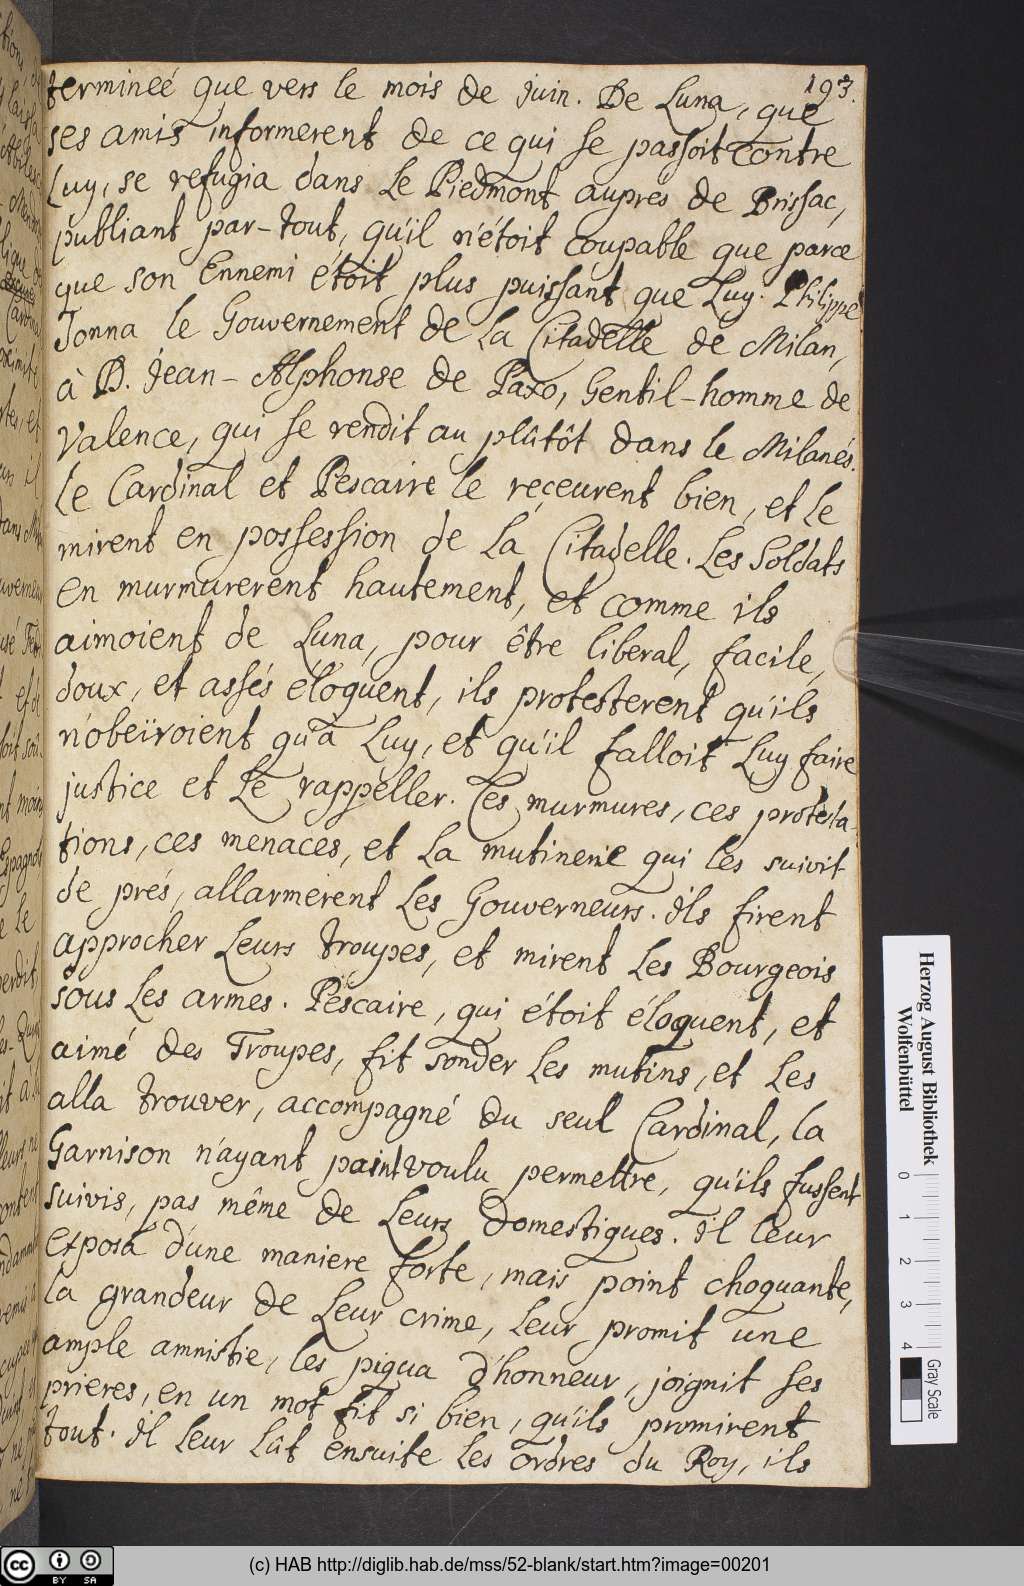 193.
termineé que vers le mois de juin. De Luna, que
ses amis informerent de ce qui se passoit contre
Luy, se refugia dans le Piedmont aupres de Brissac,
publiant par-tout, qu'il n'étoit coupable que parce
que son Ennemi étoit plus puissant que Luy. Philippe
donna le Gouvernement de la Citadelle de Milan,
à D. Jean-Alphonse de Paxo, Gentil-homme de
Valence, qui se rendit au plûtôt dans le Milanés.
Le Cardinal et Pescaire le reçeurent bien, et le
mirent en possession de la Citadelle. Les Soldats
en murmurerent hautement, et comme ils
aimoient de Luna, pour être liberal, facile,
doux, et assés éloquent, ils protesterent qu'ils
n'obeïroient qu'à Luy, et qu'il falloit Luy faire
justice et Le rappeller. Ces murmures, ces protesta-
tions, ces menaces, et la mutinerie qui les suivit
de prés, allarmerent Les Gouverneurs. Ils firent
approcher Leurs troupes, et mirent Les Bourgeois
sous Les armes. Pescaire, qui étoit éloquent, et
aimé des Troupes, fit sonder Les mutins, et Les
alla trouver, accompagné du seul Cardinal, la
Garnison n'ayant point voulu permettre, qu'ils fussent
suivis, pas même de Leurs Domestiques. Il leur
exposa d'une maniere forte, mais point choquante,
la grandeur de Leur crime, leur promit une
ample amnistie, les piqua d'honneur, joignit ses
prieres, en un mot fit si bien, qu'ils promirent
tout. Il Leur lût ensuite Les ordres du Roy, ils
Herzog August Bibliothek
Wolfenbüttel
0 1 2 3 4
Gray Scale
cc BY SA
(c) HAB http://diglib.hab.de/mss/52-blank/start.htm?image=00201